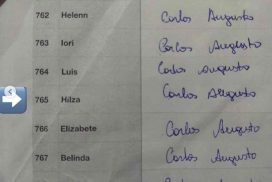 762 Helenn Carlos Augusto
763 Iori Carlos Augusto
764 Luis Carlos Augusto
765 Hilza Carlos Augusto
766 Elizabete Carlos Augusto
767 Belinda Carlos Augusto